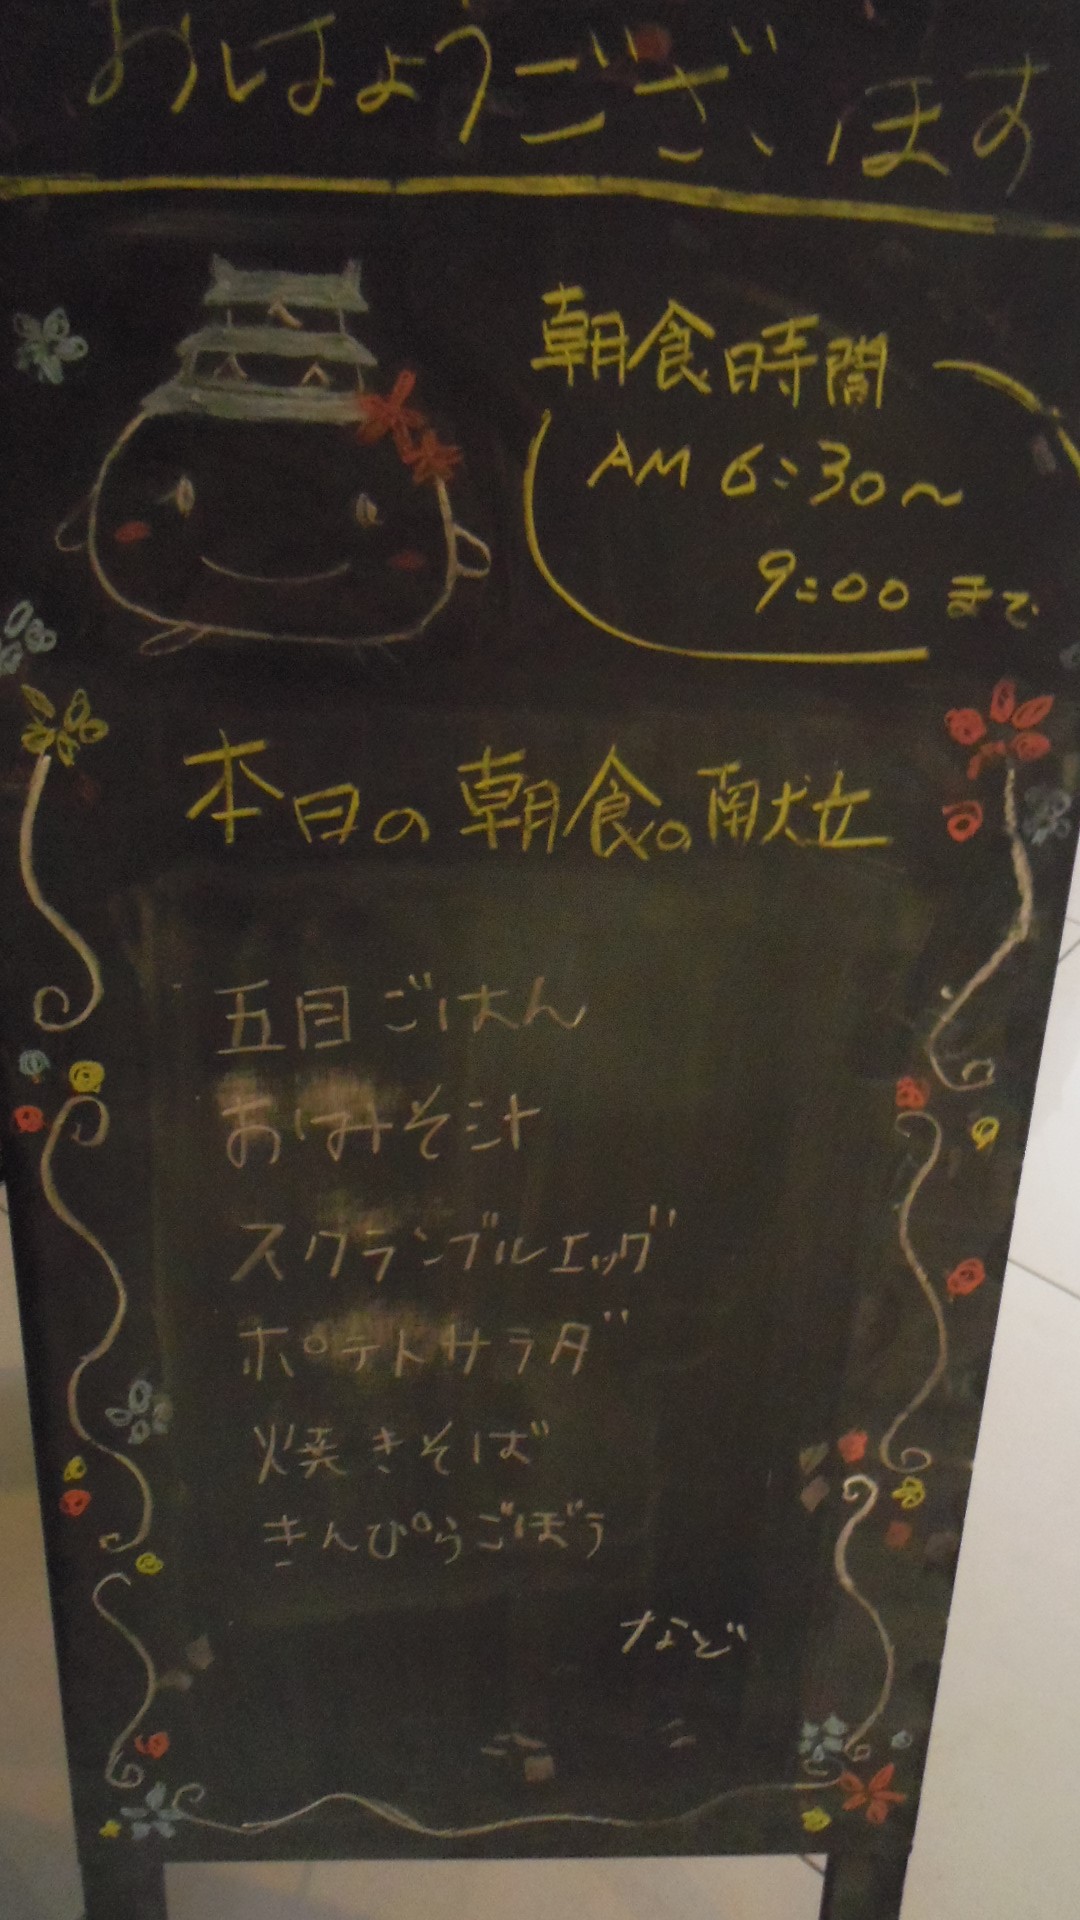 おはようございます
朝食時間
AM 6:30〜
9:00 まで
本日の朝食の献立
五目ごはん
おみそ汁
スクランブルエッグ
ポテトサラダ
焼きそば
きんぴらごぼう
など